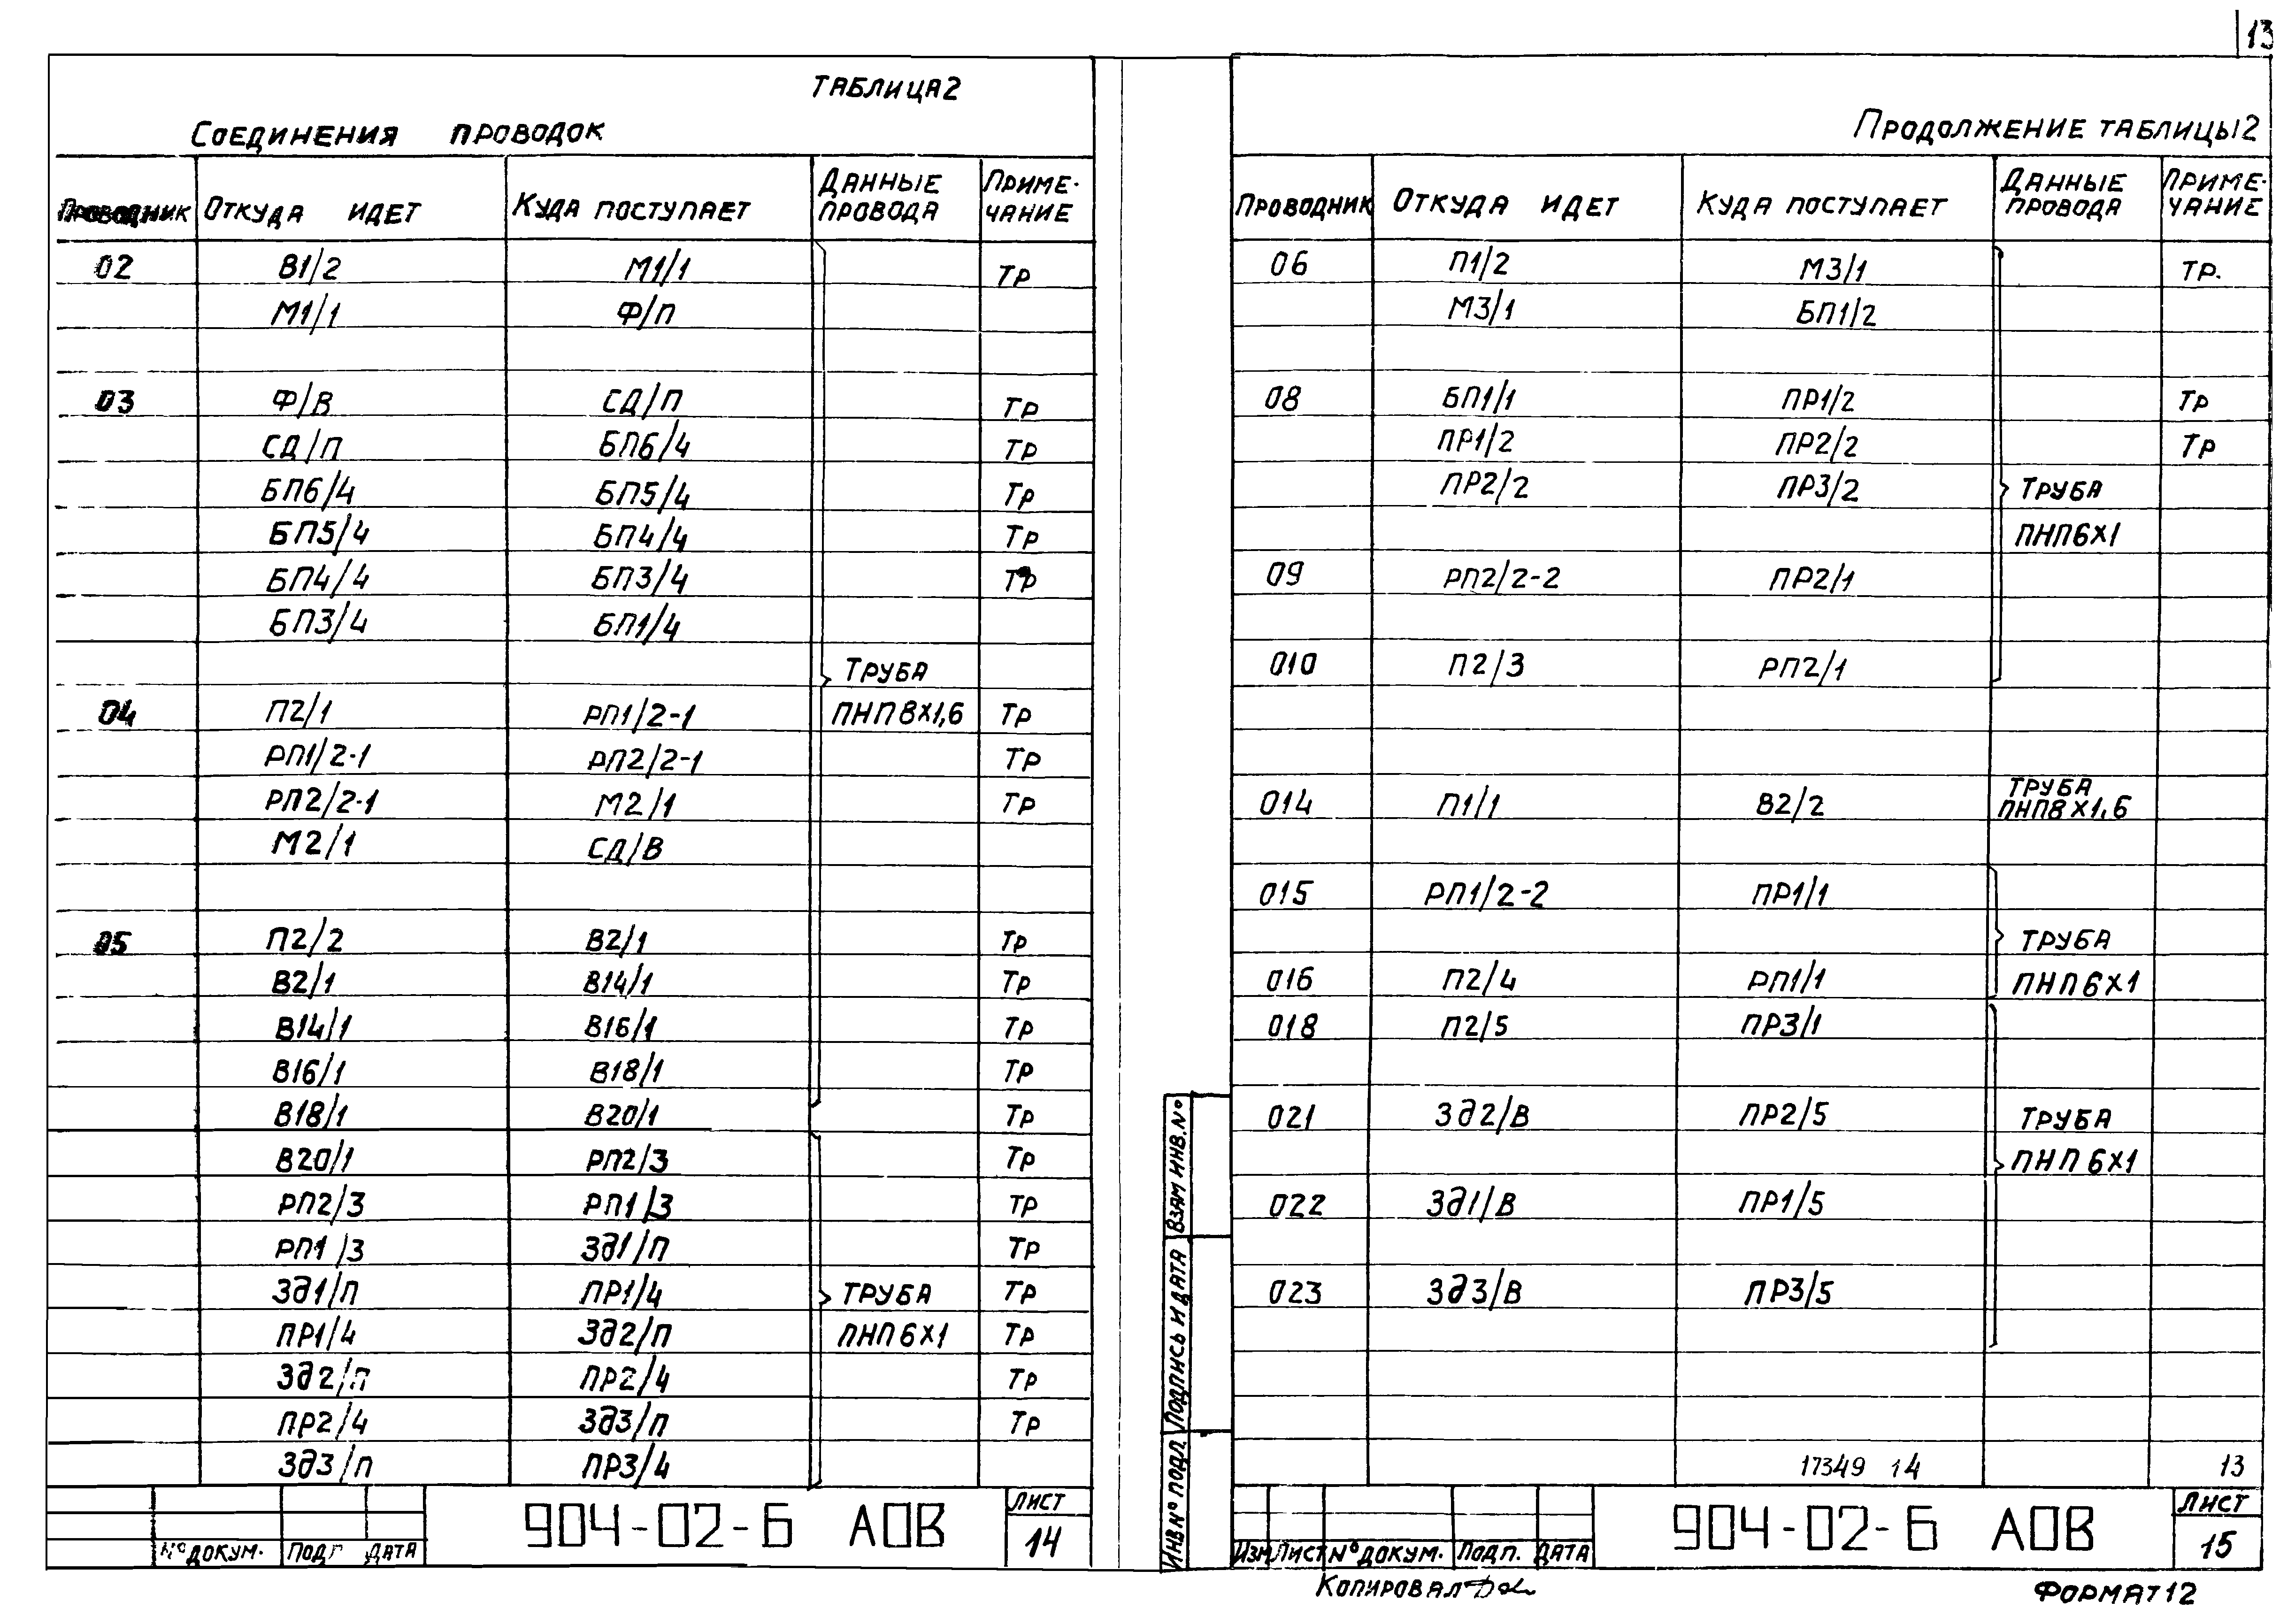 13
ТАБЛИЦА 2
СОЕДИНЕНИЯ ПРОВОДОК
ПРОВОДНИК ОТКУДА ИДЕТ КУДА ПОСТУПАЕТ ДАННЫЕ ПРОВОДА ПРИМЕ-ЧАНИЕ
02 В1/2 М1/1 ТР
М1/1 Ф/П
03 Ф/В СД/П ТР
СД/П БП6/4 ТР
БП6/4 БП5/4 ТР
БП5/4 БП4/4 ТР
БП4/4 БП3/4 ТР
БП3/4 БП1/4
ТРУБА
04 П2/1 РП1/2-1 ПНП8х1,6 ТР
РП1/2-1 РП2/2-1 ТР
РП2/2-1 М2/1 ТР
М2/1 СД/В
05 П2/2 В2/1 ТР
В2/1 В14/1 ТР
В14/1 В16/1 ТР
В16/1 В18/1 ТР
В18/1 В20/1 ТР
В20/1 РП2/3 ТР
РП2/3 РП1/3 ТР
РП1/3 Зд1/П ТР
Зд1/П ПР1/4 ТРУБА ТР
ПР1/4 Зд2/П ПНП6х1 ТР
Зд2/П ПР2/4 ТР
ПР2/4 Зд3/П ТР
Зд3/П ПР3/4
№ДОКУМ. ПОДП ДАТА
904-02-Б АОВ
ЛИСТ
14
ПРОДОЛЖЕНИЕ ТАБЛИЦЫ 2
ПРОВОДНИК ОТКУДА ИДЕТ КУДА ПОСТУПАЕТ ДАННЫЕ ПРОВОДА ПРИМЕ-ЧАНИЕ
06 П1/2 М3/1 ТР.
М3/1 БП1/2
08 БП1/1 ПР1/2 ТР
ПР1/2 ПР2/2 ТР
ПР2/2 ПР3/2 ТРУБА
ПНП6х1
09 РП2/2-2 ПР2/1
010 П2/3 РП2/1
014 П1/1 В2/2 ТРУБА ПНП8х1,6
015 РП1/2-2 ПР1/1
ТРУБА
016 П2/4 РП1/1 ПНП6х1
018 П2/5 ПР3/1
021 Зд2/В ПР2/5 ТРУБА
ПНП6х1
022 Зд1/В ПР1/5
023 Зд3/В ПР3/5
17349 14 13
ИНВ № ПОДЛ ПОДПИСЬ И ДАТА ВЗАМ ИНВ.№
ИЗМ ЛИСТ №ДОКУМ. ПОДП. ДАТА
904-02-Б АОВ
ЛИСТ
15
КОПИРОВАЛ
ФОРМАТ 12